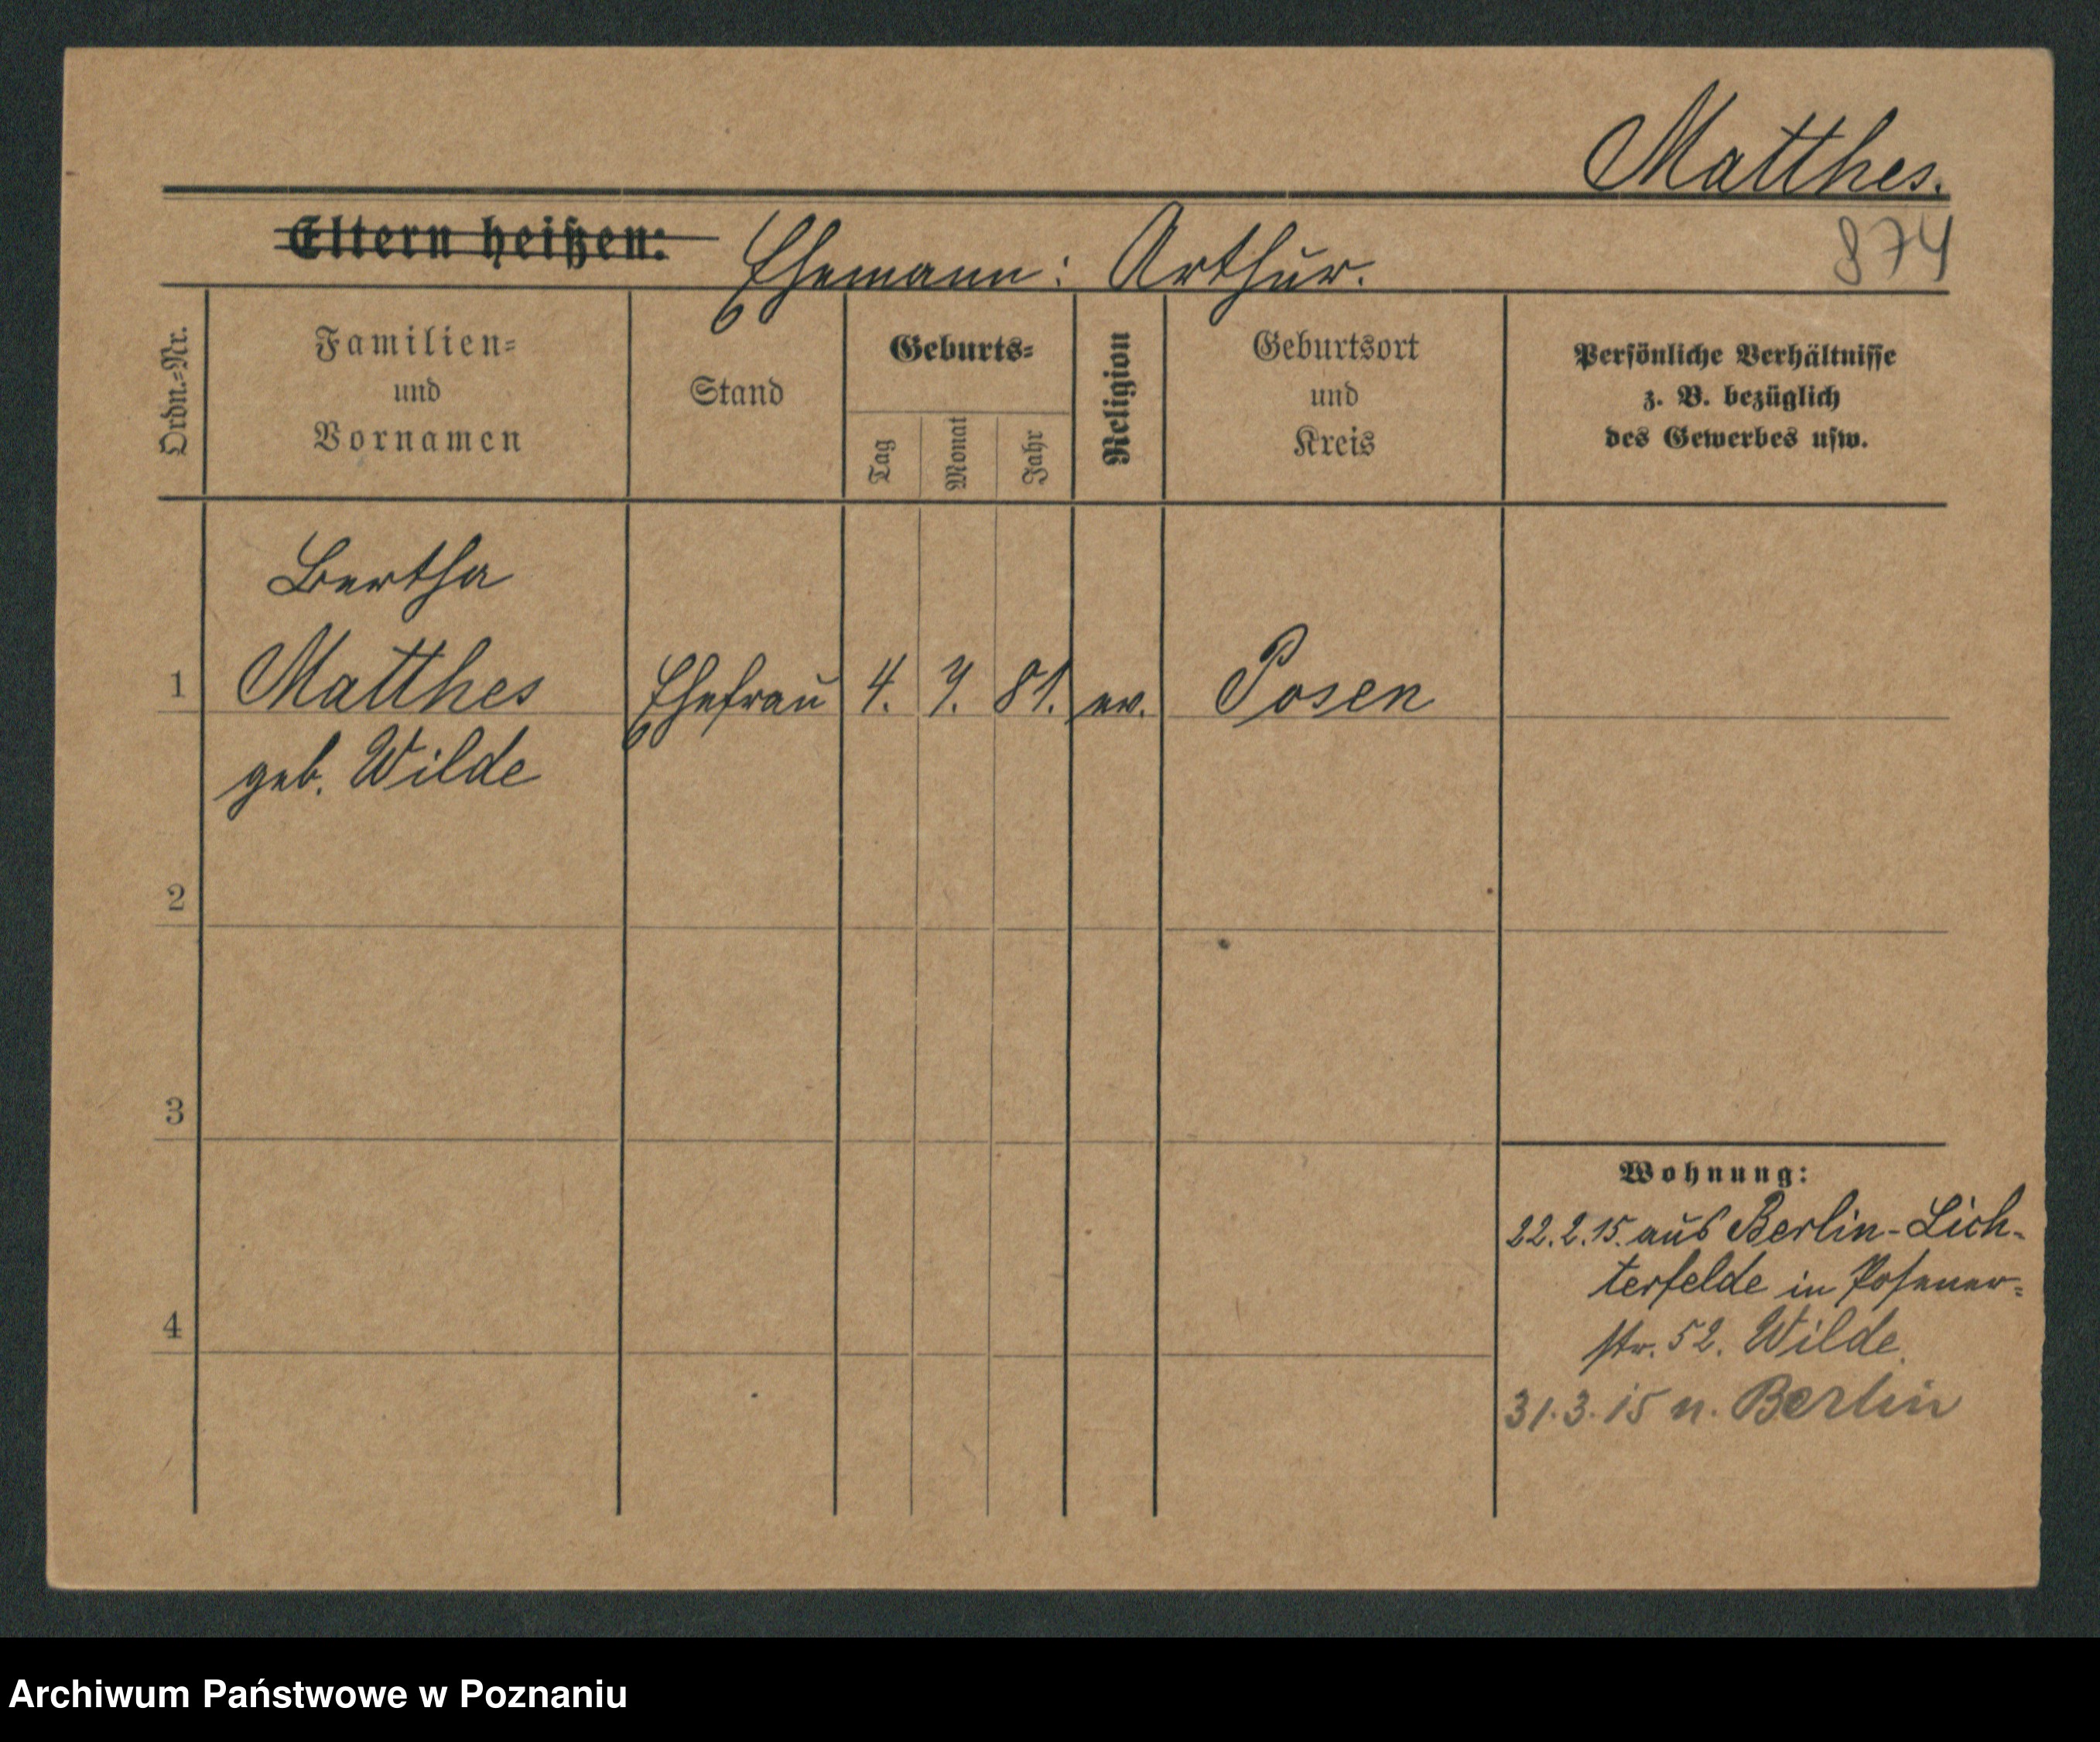 Matthes.
874
Eltern heißen: Ehemann: Arthur.
Ordn.-Nr.
Familien-
und
Vornamen
Stand
Geburts-
Tag
Monat
Jahr
Religion
Geburtsort
und
Kreis
Persönliche Verhältnisse
z. B. bezüglich
des Gewerbes usw.
Bertha
1 Matthes Ehefrau 4. 7. 81. ev. Posen
geb. Wilde
2
3
4
Wohnung:
22.2.15. aus Berlin-Lich-
terfelde in Posener-
str. 52. Wilde.
31.3.15 n. Berlin
Archiwum Państwowe w Poznaniu